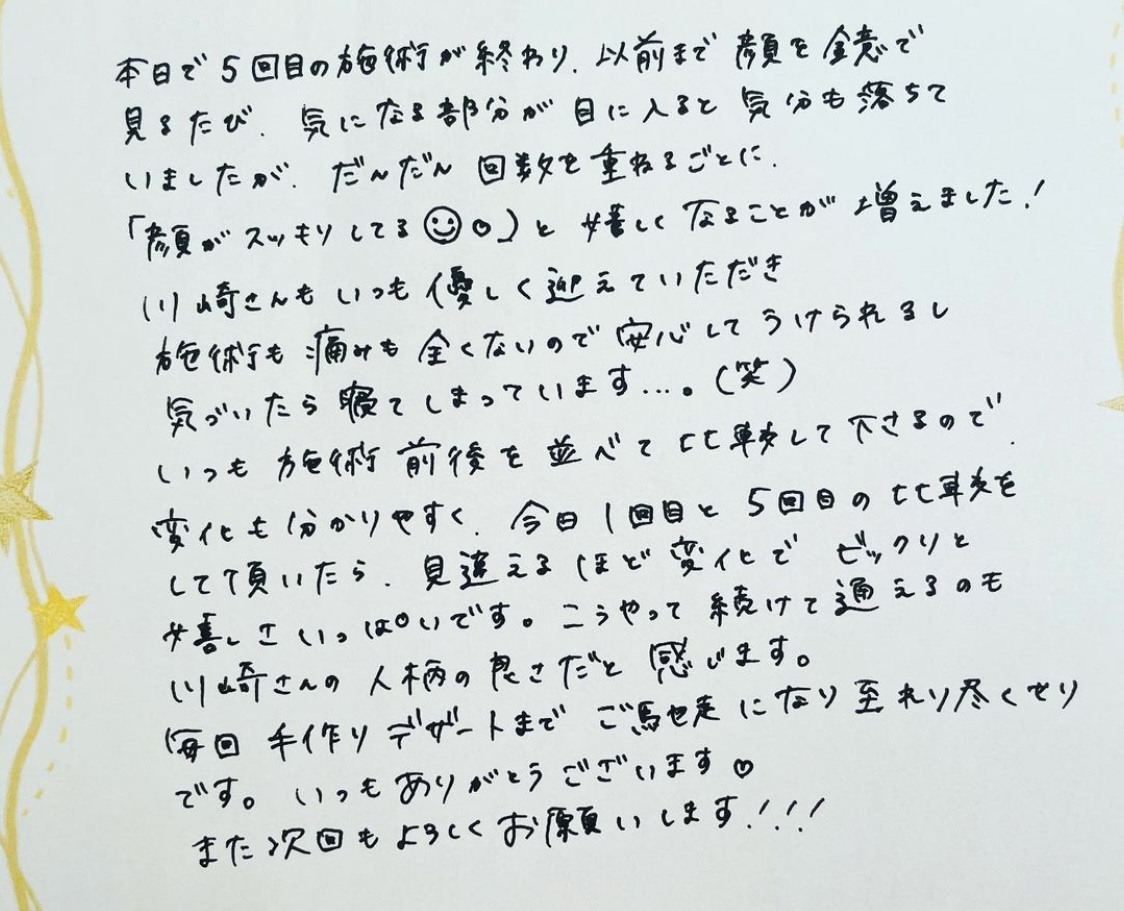 本日で5回目の施術が終わり、以前まで顔を鏡で
見るたび、気になる部分が目に入ると気分も落ちて
いましたが、だんだん回数を重ねるごとに、
「顔がスッキリしてる☺♡」と嬉しくなることが増えました!
川崎さんもいつも優しく迎えていただき
施術も痛みも全くないので安心してうけられるし
気づいたら寝てしまっています…。(笑)
いつも施術前後を並べて比較して下さるので、
変化も分かりやすく、今日1回目と5回目の比較を
して頂いたら、見違えるほど変化でビックリと
嬉しさいっぱいです。こうやって続けて通えるのも
川崎さんの人柄の良さだと感じます。
毎回手作りデザートまでご馳走になり至れり尽くせり
です。いつもありがとうございます♡
また次回もよろしくお願いします!!!